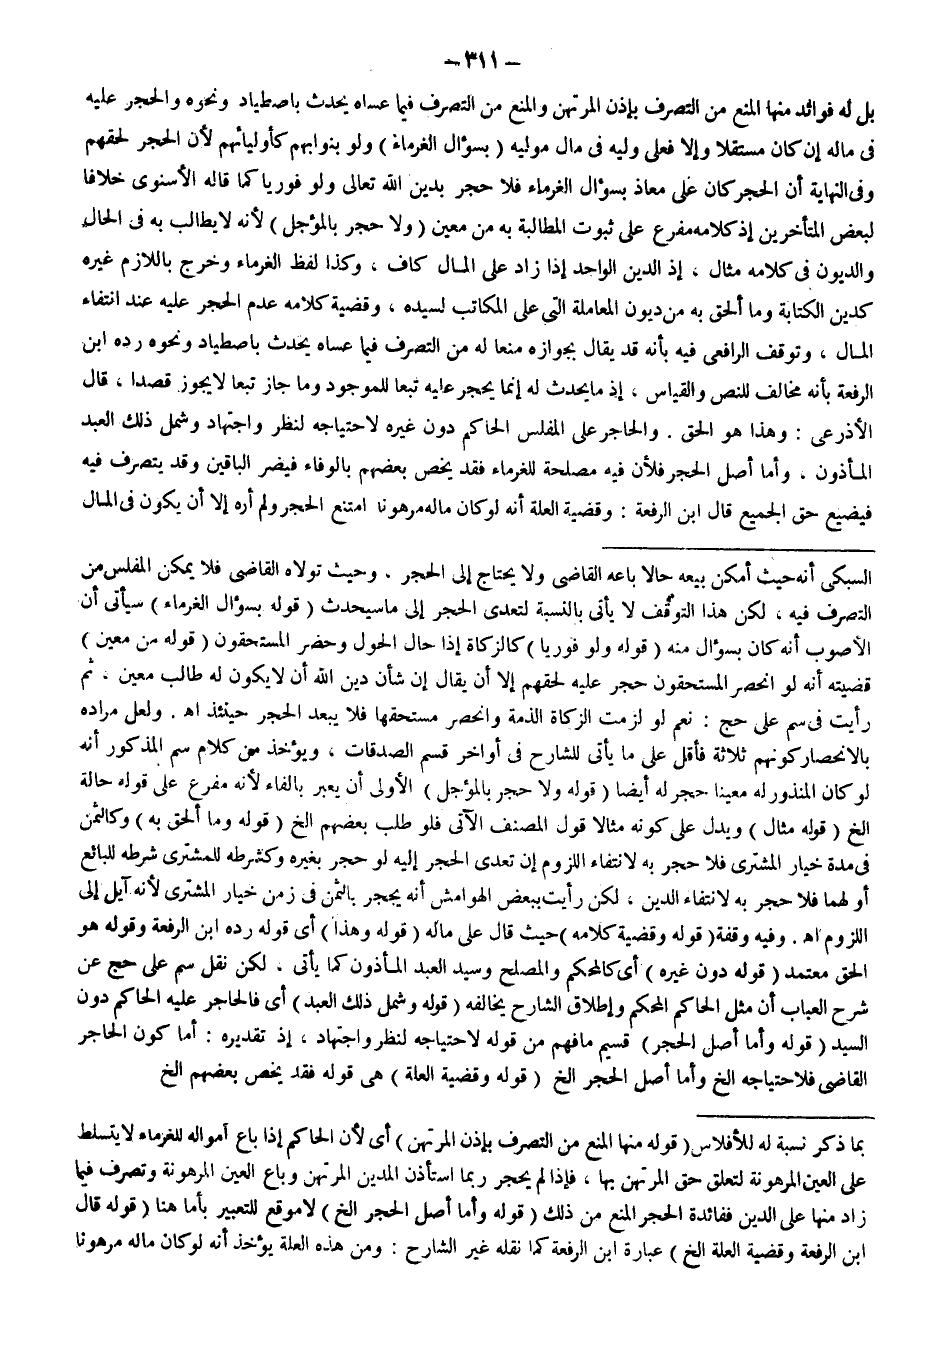 – ٣١١ –
بل له فوائد منها المنع من التصرف بإذن المرتهن والمنع من التصرف فيما عساه يحدث باصطياد ونحوه والحجر عليه
فى ماله إن كان مستقلا وإلا فعلى وليه فى مال موليه ( بسؤال الغرماء ) ولو بنوابهم كأوليائهم لأن الحجر لحقهم
وفى النهاية أن الحجر كان على معاذ بسؤال الغرماء فلا حجر بدين الله تعالى ولو فوريا كما قاله الأسنوى خلافا
لبعض المتأخرين إذ كلامه مفرع على ثبوت المطالبة به من معين ( ولا حجر بالمؤجل ) لأنه لا يطالب به فى الحال
والديون فى كلامه مثال ، إذ الدين الواحد إذا زاد على المال كاف ، وكذا لفظ الغرماء وخرج باللازم غيره
كدين الكتابة وما ألحق به من ديون المعاملة التى على المكاتب لسيده ، وقضية كلامه عدم الحجر عليه عند انتفاء
المال ، وتوقف الرافعى فيه بأنه قد يقال بجوازه منعا له من التصرف فيما عساه يحدث باصطياد ونحوه رده ابن
الرفعة بأنه مخالف للنص والقياس ، إذ مايحدث له إنما يحجر عليه تبعا للموجود وما جاز تبعا لايجوز قصدا ، قال
الأذرعى : وهذا هو الحق . والحاجر على المفلس الحاكم دون غيره لاحتياجه لنظر واجتهاد وشمل ذلك العبد
المأذون ، وأما أصل الحجر فلأن فيه مصلحة للغرماء فقد يخص بعضهم بالوفاء فيضر الباقين وقد يتصرف فيه
فيضيع حق الجميع قال ابن الرفعة : وقضية العلة أنه لو كان ماله مرهونا امتنع الحجر ولم أره إلا أن يكون فى المال
السبكى أنه حيث أمكن بيعه حالا باعه القاضى ولا يحتاج إلى الحجر . وحيث تولاه القاضى فلا يمكن المفلس من
التصرف فيه ، لكن هذا التوقف لا يأتى بالنسبة لتعدى الحجر إلى ماسيحدث ( قوله بسؤال الغرماء ) سيأتى أن
الأصوب أنه كان بسؤال منه ( قوله ولو فوريا ) كالزكاة إذا حال الحول وحضر المستحقون ( قوله من معين )
قضيته أنه لو انحصر المستحقون حجر عليه لحقهم إلا أن يقال إن شأن دين الله أن لايكون له طالب معين ، ثم
رأيت فى سم على حج : نعم لو لزمت الزكاة الذمة وانحصر مستحقها فلا يبعد الحجر حينئذ اه . ولعل مراده
بالانحصار كونهم ثلاثة فأقل على ما يأتى للشارح فى أواخر قسم الصدقات ، ويؤخذ من كلام سم المذكور أنه
لو كان المنذور له معينا حجر له أيضا ( قوله ولا حجر بالمؤجل ) الأولى أن يعبر بالفاء لأنه مفرع على قوله حالة
الخ ( قوله مثال ) ويدل على كونه مثالا قول المصنف الآتى فلو طلب بعضهم الخ ( قوله وما ألحق به ) وكالثمن
فى مدة خيار المشترى فلا حجر به لانتفاء اللزوم إن تعدى الحجر إليه لو حجر بغيره وكشرطه للمشترى شرطه للبائع
أو لهما فلا حجر به لانتفاء الدين ، لكن رأيت ببعض الهوامش أنه يحجر بالثمن فى زمن خيار المشترى لأنه آيل إلى
اللزوم اه . وفيه وقفة ( قوله وقضية كلامه ) حيث قال على ماله ( قوله وهذا ) أى قوله رده ابن الرفعة وقوله هو
الحق معتمد ( قوله دون غيره ) أى كالمحكم والمصلح وسيد العبد المأذون كما يأتى ، لكن نقل سم على حج عن
شرح العباب أن مثل الحاكم المحكم وإطلاق الشارح يخالفه ( قوله وشمل ذلك العبد ) أى فالحاجر عليه الحاكم دون
السيد ( قوله وأما أصل الحجر ) قسيم مافهم من قوله لاحتياجه لنظر واجتهاد ، إذ تقديره : أما كون الحاجر
القاضى فلاحتياجه الخ وأما أصل الحجر الخ ( قوله وقضية العلة ) هى قوله فقد يخص بعضهم الخ
بما ذكر نسبة له للأفلاس ( قوله منها المنع من التصرف بإذن المرتهن ) أى لأن الحاكم إذا باع أمواله للغرماء لايتسلط
على العين المرهونة لتعلق حق المرتهن بها ، فإذا لم يحجر ربما استأذن المدين المرتهن وباع العين المرهونة وتصرف فيما
زاد منها على الدين ففائدة الحجر المنع من ذلك ( قوله وأما أصل الحجر الخ ) لاموقع للتعبير بأما هنا ( قوله قال
ابن الرفعة وقضية العلة الخ ) عبارة ابن الرفعة كما نقله غير الشارح : ومن هذه العلة يؤخذ أنه لو كان ماله مرهونا